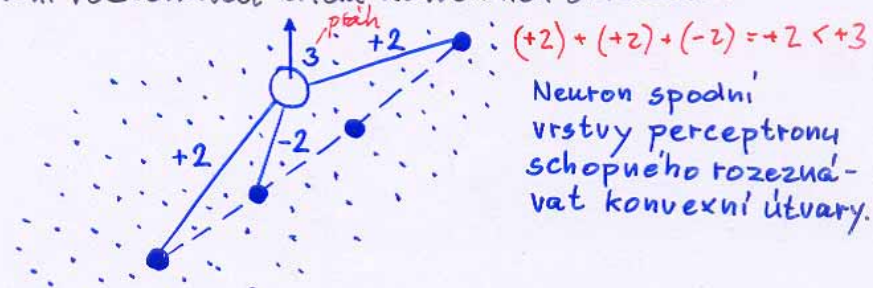 práh
3
+2
(+2) + (+2) + (-2) = +2 < +3
+2
-2
Neuron spodní
vrstvy perceptronu
schopného rozezná-
vat konvexní útvary.